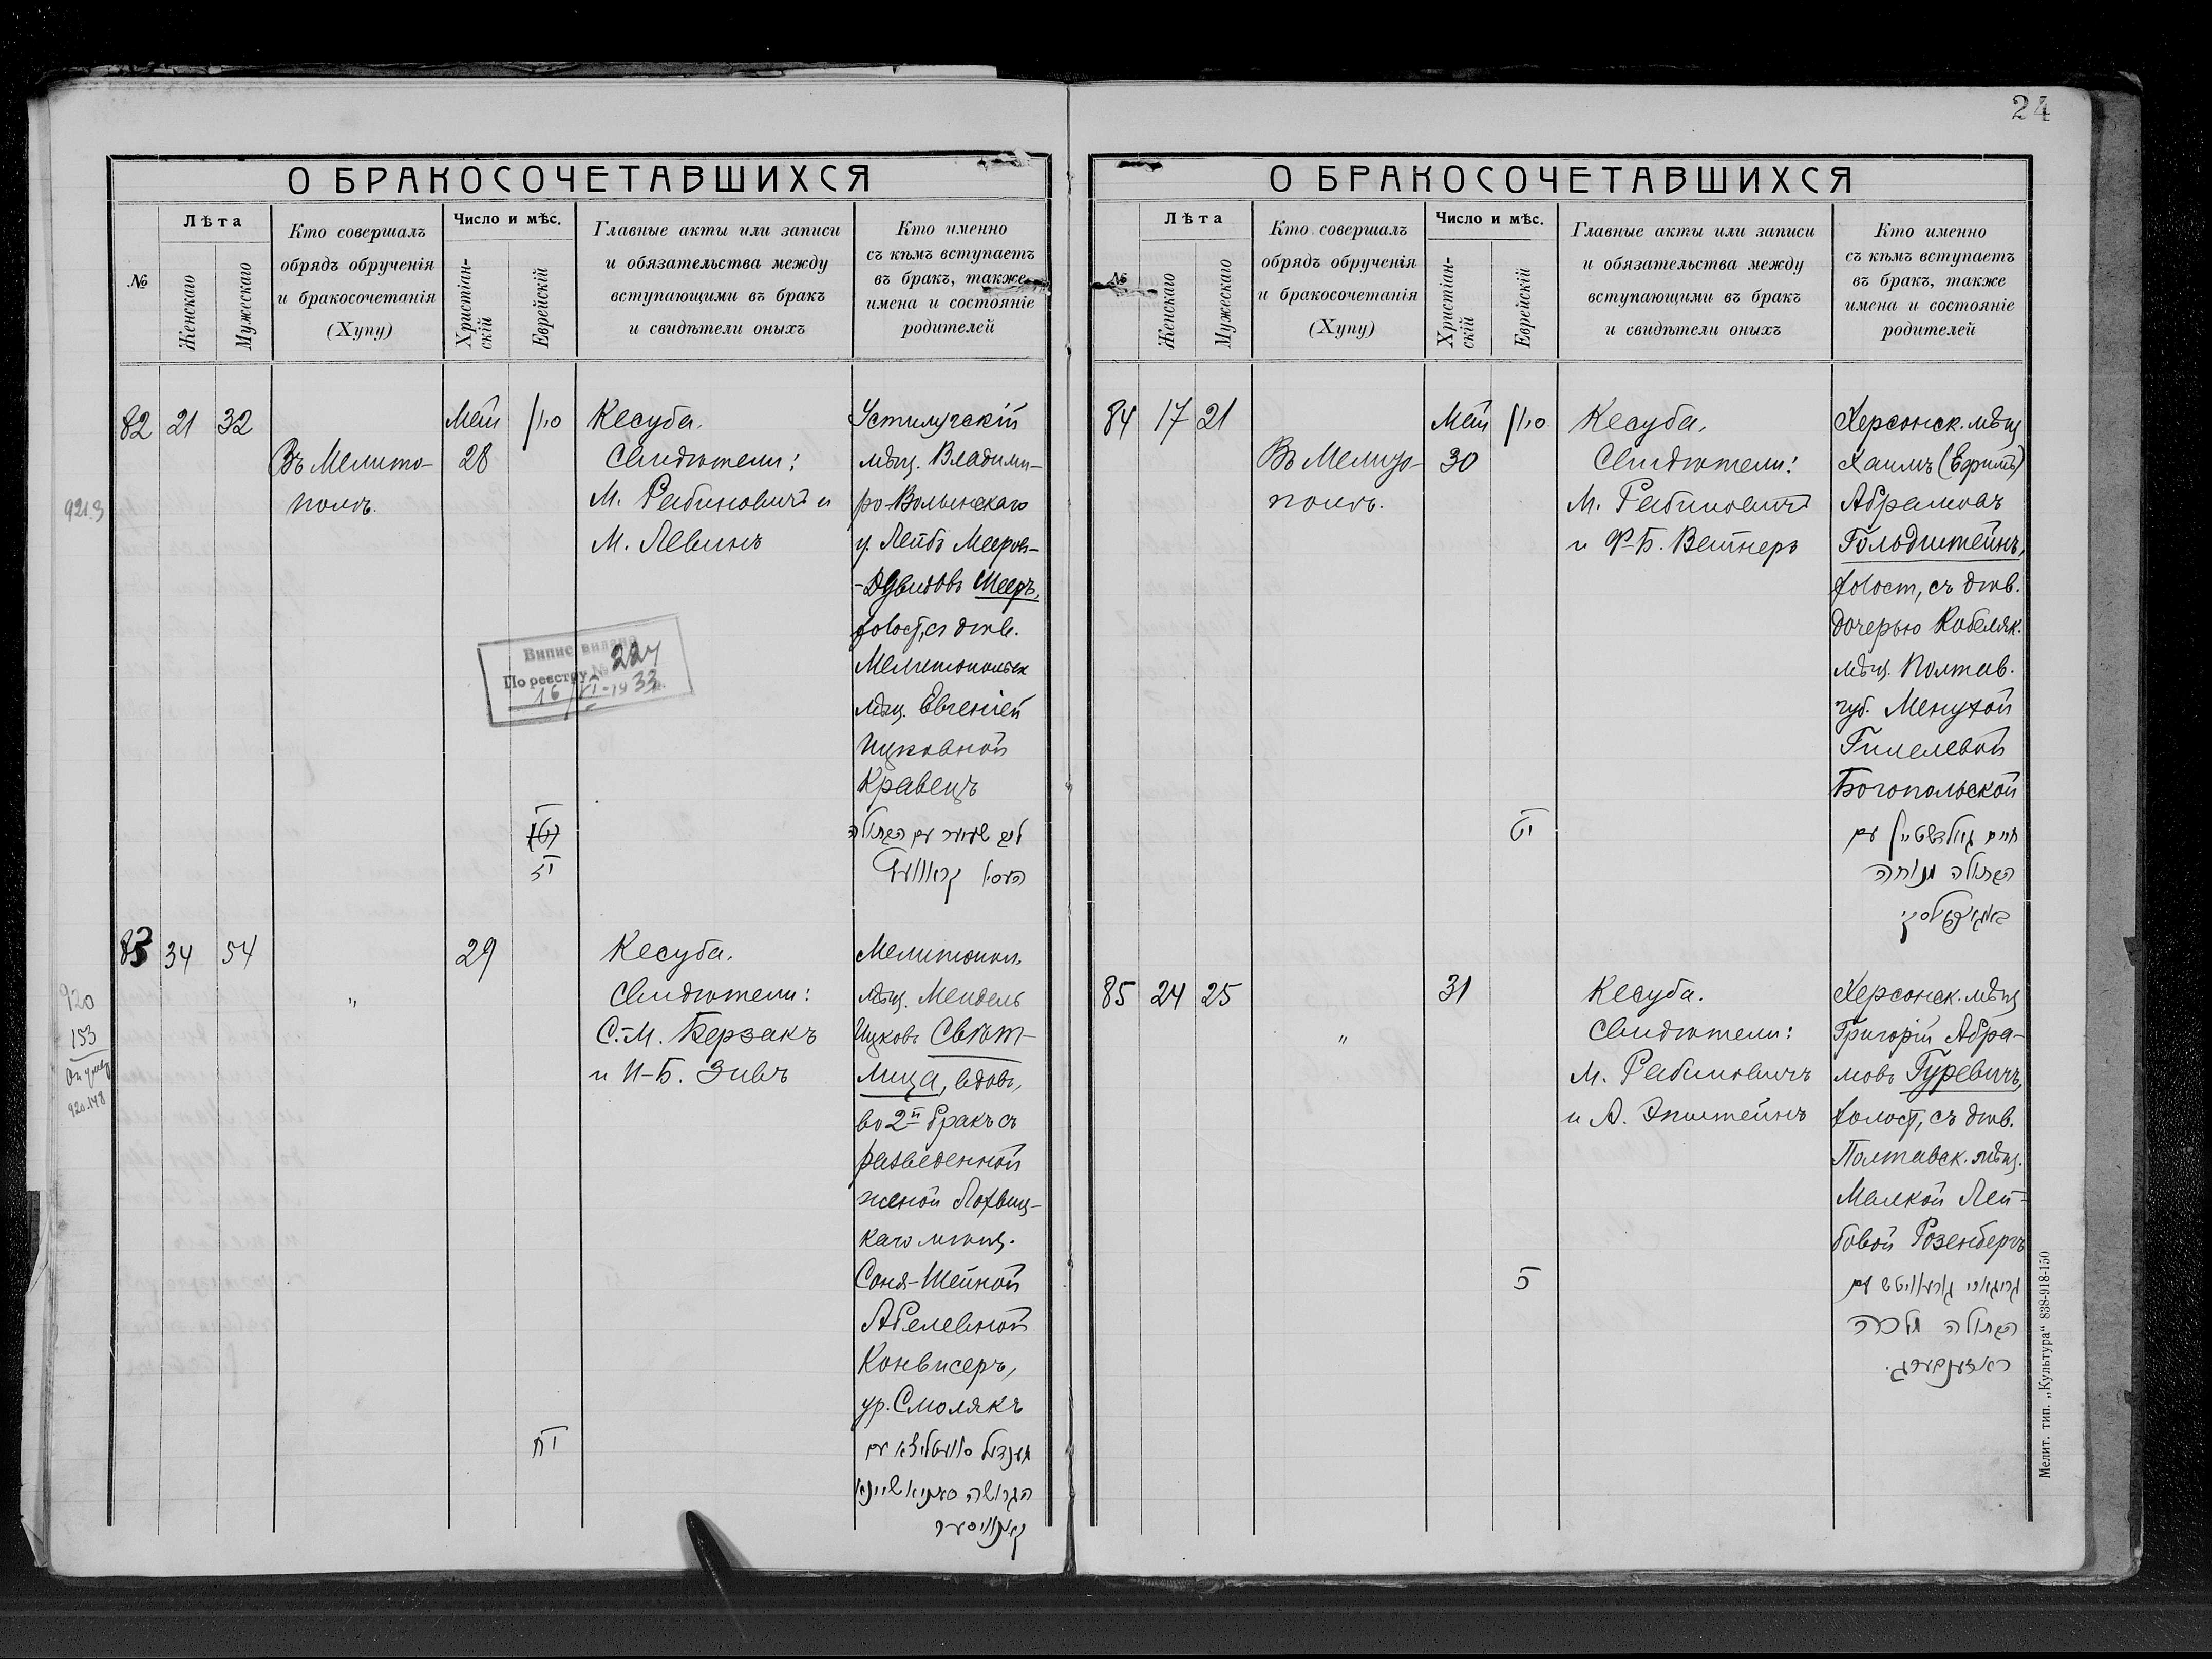 24
О БРАКОСОЧЕТАВШИХСЯ
№
Лѣта
Женскаго
Мужескаго
Кто совершалъ
обрядъ обрученія
и бракосочетанія
(Хупу)
Число и мѣс.
Христіан-
скій
Еврейскій
Главные акты или записи
и обязательства между
вступающими въ бракъ
и свидѣтели оныхъ
Кто именно
съ кѣмъ вступаетъ
въ бракъ, также
имена и состояніе
родителей
82 21 32
Въ Мелито-
полѣ.
Май
28
Кесуба.
Свидѣтели:
М. Рабиновичъ и
М. Левинъ
Устилугскій
мѣщ. Владими-
ро-Волынскаго
у. Лейбъ Мееров-
-Дувидовъ Шееръ,
холост, съ дѣв.
Мелитопольск
мѣщ. Евгеніей
Ицковной
Кравецъ
Випис видано
По реестру № 224
16/VI-1933
9213
83 34 54
"
29
Кесуба.
Свидѣтели:
С.-М. Берзакъ
и И-Б. Зивъ
Мелитопол.
мѣщ. Мендель
Ицковъ Свѣт-
лица, вдов.,
во 2й бракъ съ
разведенной
женой Лохвиц-
каго мѣщ.
Соня-Шейной
Абелевной
Конвисеръ,
ур. Смолякъ
920
153
920.148
О БРАКОСОЧЕТАВШИХСЯ
№
Лѣта
Женскаго
Мужескаго
Кто совершалъ
обрядъ обрученія
и бракосочетанія
(Хупу)
Число и мѣс.
Христіан-
скій
Еврейскій
Главные акты или записи
и обязательства между
вступающими въ бракъ
и свидѣтели оныхъ
Кто именно
съ кѣмъ вступаетъ
въ бракъ, также
имена и состояніе
родителей
84 17 21
Въ Мелито-
полѣ.
Май
30
Кесуба.
Свидѣтели:
М. Рабиновичъ
и Ф-Б. Вейнеръ
Херсонск. мѣщ
Хаимъ (Ефимъ)
Абрамовъ
Гольдштейнъ,
холост, съ дѣв.
дочерью Кобеляк.
мѣщ. Полтав.
губ. Менухой
Гилелевой
Богопольской
חיים גולדשטיין עם
הבתולה מנוחה
85 24 25
"
31
Кесуба.
Свидѣтели:
М. Рабиновичъ
и А. Эпштейнъ
Херсонск. мѣщ
Григорій Абра-
мовъ Гуревичъ,
холост, съ дѣв.
Полтавск. мѣщ.
Малкой Лей-
бовой Розенбергъ
הבתולה מלכה
Мелит. тип. „Культура“ 838-918-150